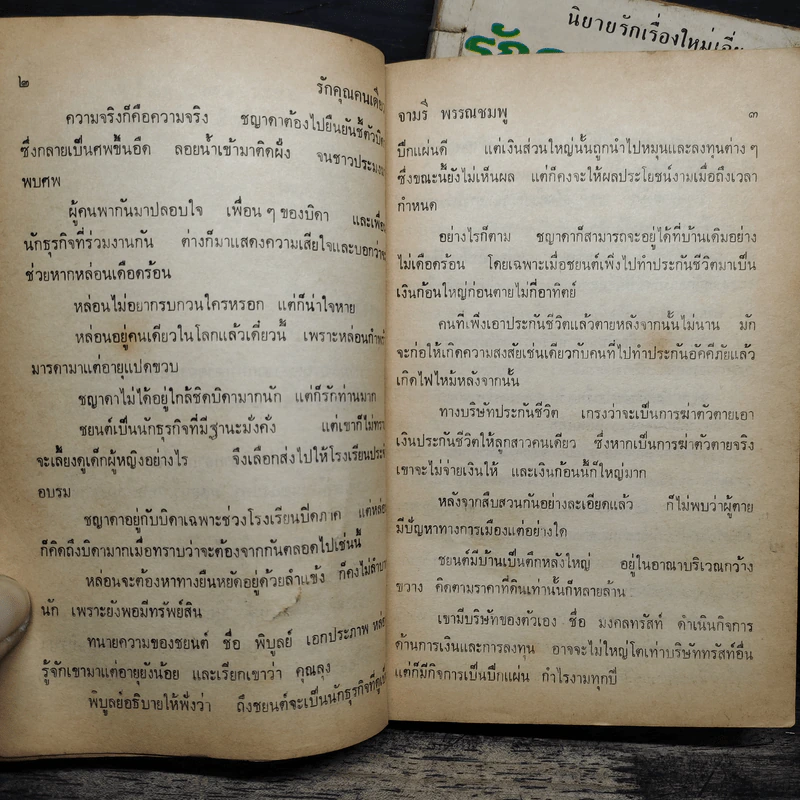 นิยายรักเรื่องใหม่เอี่
๒
รักคุณคนเดีย
ความจริงก็คือความจริง ชญาดาต้องไปยืนยันชี้ตัวบิด
ซึ่งกลายเป็นศพขึ้นอืด ลอยน้ำเข้ามาติดฝั่ง จนชาวประมง
พบศพ
ผู้คนพากันมาปลอบใจ เพื่อน ๆ ของบิดา และเพื่อ
นักธุรกิจที่ร่วมงานกัน ต่างก็มาแสดงความเสียใจและบอกว่า
ช่วยหากหล่อนเดือดร้อน
หล่อนไม่อยากรบกวนใครหรอก แต่ก็น่าใจหาย
หล่อนอยู่คนเดียวในโลกแล้วเดี๋ยวนี้ เพราะหล่อนกำพร้
มารดามาแต่อายุแปดขวบ
ชญาดาไม่ได้อยู่ใกล้ชิดบิดามากนัก แต่ก็รักท่านมาก
ชยนต์เป็นนักธุรกิจที่มีฐานะมั่งคั่ง แต่เขาก็ไม่ทรา
จะเลี้ยงดูเด็กผู้หญิงอย่างไร จึงเลือกส่งไปให้โรงเรียนประจ
อบรม
ชญาดาอยู่กับบิดาเฉพาะช่วงโรงเรียนปิดภาค แต่หล่อ
ก็คิดถึงบิดามากเมื่อทราบว่าจะต้องจากกันตลอดไปเช่นนี้
หล่อนจะต้องหาทางยืนหยัดอยู่ด้วยลำแข้ง ก็คงไม่ลำบา
นัก เพราะยังพอมีทรัพย์สิน
ทนายความของชยนต์ ชื่อ พิบูลย์ เอกประภาพ หล่อ
รู้จักเขามาแต่อายุยังน้อย และเรียกเขาว่า คุณลุง
พิบูลย์อธิบายให้ฟังว่า ถึงชยนต์จะเป็นนักธุรกิจที่ดูเป็
จามรี พรรณชมพู
๓
ปึกแผ่นดี แต่เงินส่วนใหญ่นั้นถูกนำไปหมุนและลงทุนต่าง ๆ
ซึ่งขณะนี้ยังไม่เห็นผล แต่ก็คงจะให้ผลประโยชน์งามเมื่อถึงเวลา
กำหนด
อย่างไรก็ตาม ชญาดาก็สามารถจะอยู่ได้ที่บ้านเดิมอย่าง
ไม่เดือดร้อน โดยเฉพาะเมื่อชยนต์เพิ่งไปทำประกันชีวิตมาเป็น
เงินก้อนใหญ่ก่อนตายไม่กี่อาทิตย์
คนที่เพิ่งเอาประกันชีวิตแล้วตายหลังจากนั้นไม่นาน มัก
จะก่อให้เกิดความสงสัยเช่นเดียวกับคนที่ไปทำประกันอัคคีภัยแล้ว
เกิดไฟไหม้หลังจากนั้น
ทางบริษัทประกันชีวิต เกรงว่าจะเป็นการฆ่าตัวตายเอา
เงินประกันชีวิตให้ลูกสาวคนเดียว ซึ่งหากเป็นการฆ่าตัวตายจริง
เขาจะไม่จ่ายเงินให้ และเงินก้อนนี้ก็ใหญ่มาก
หลังจากสืบสวนกันอย่างละเอียดแล้ว ก็ไม่พบว่าผู้ตาย
มีปัญหาทางการเมืองแต่อย่างใด
ชยนต์มีบ้านเป็นตึกหลังใหญ่ อยู่ในอาณาบริเวณกว้าง
ขวาง คิดตามราคาที่ดินเท่านั้นก็หลายล้าน
เขามีบริษัทของตัวเอง ชื่อ มงคลทรัสท์ ดำเนินกิจการ
ด้านการเงินและการลงทุน อาจจะไม่ใหญ่โตเท่าบริษัททรัสท์อื่น
แต่ก็มีกิจการเป็นปึกแผ่น กำไรงามทุกปี